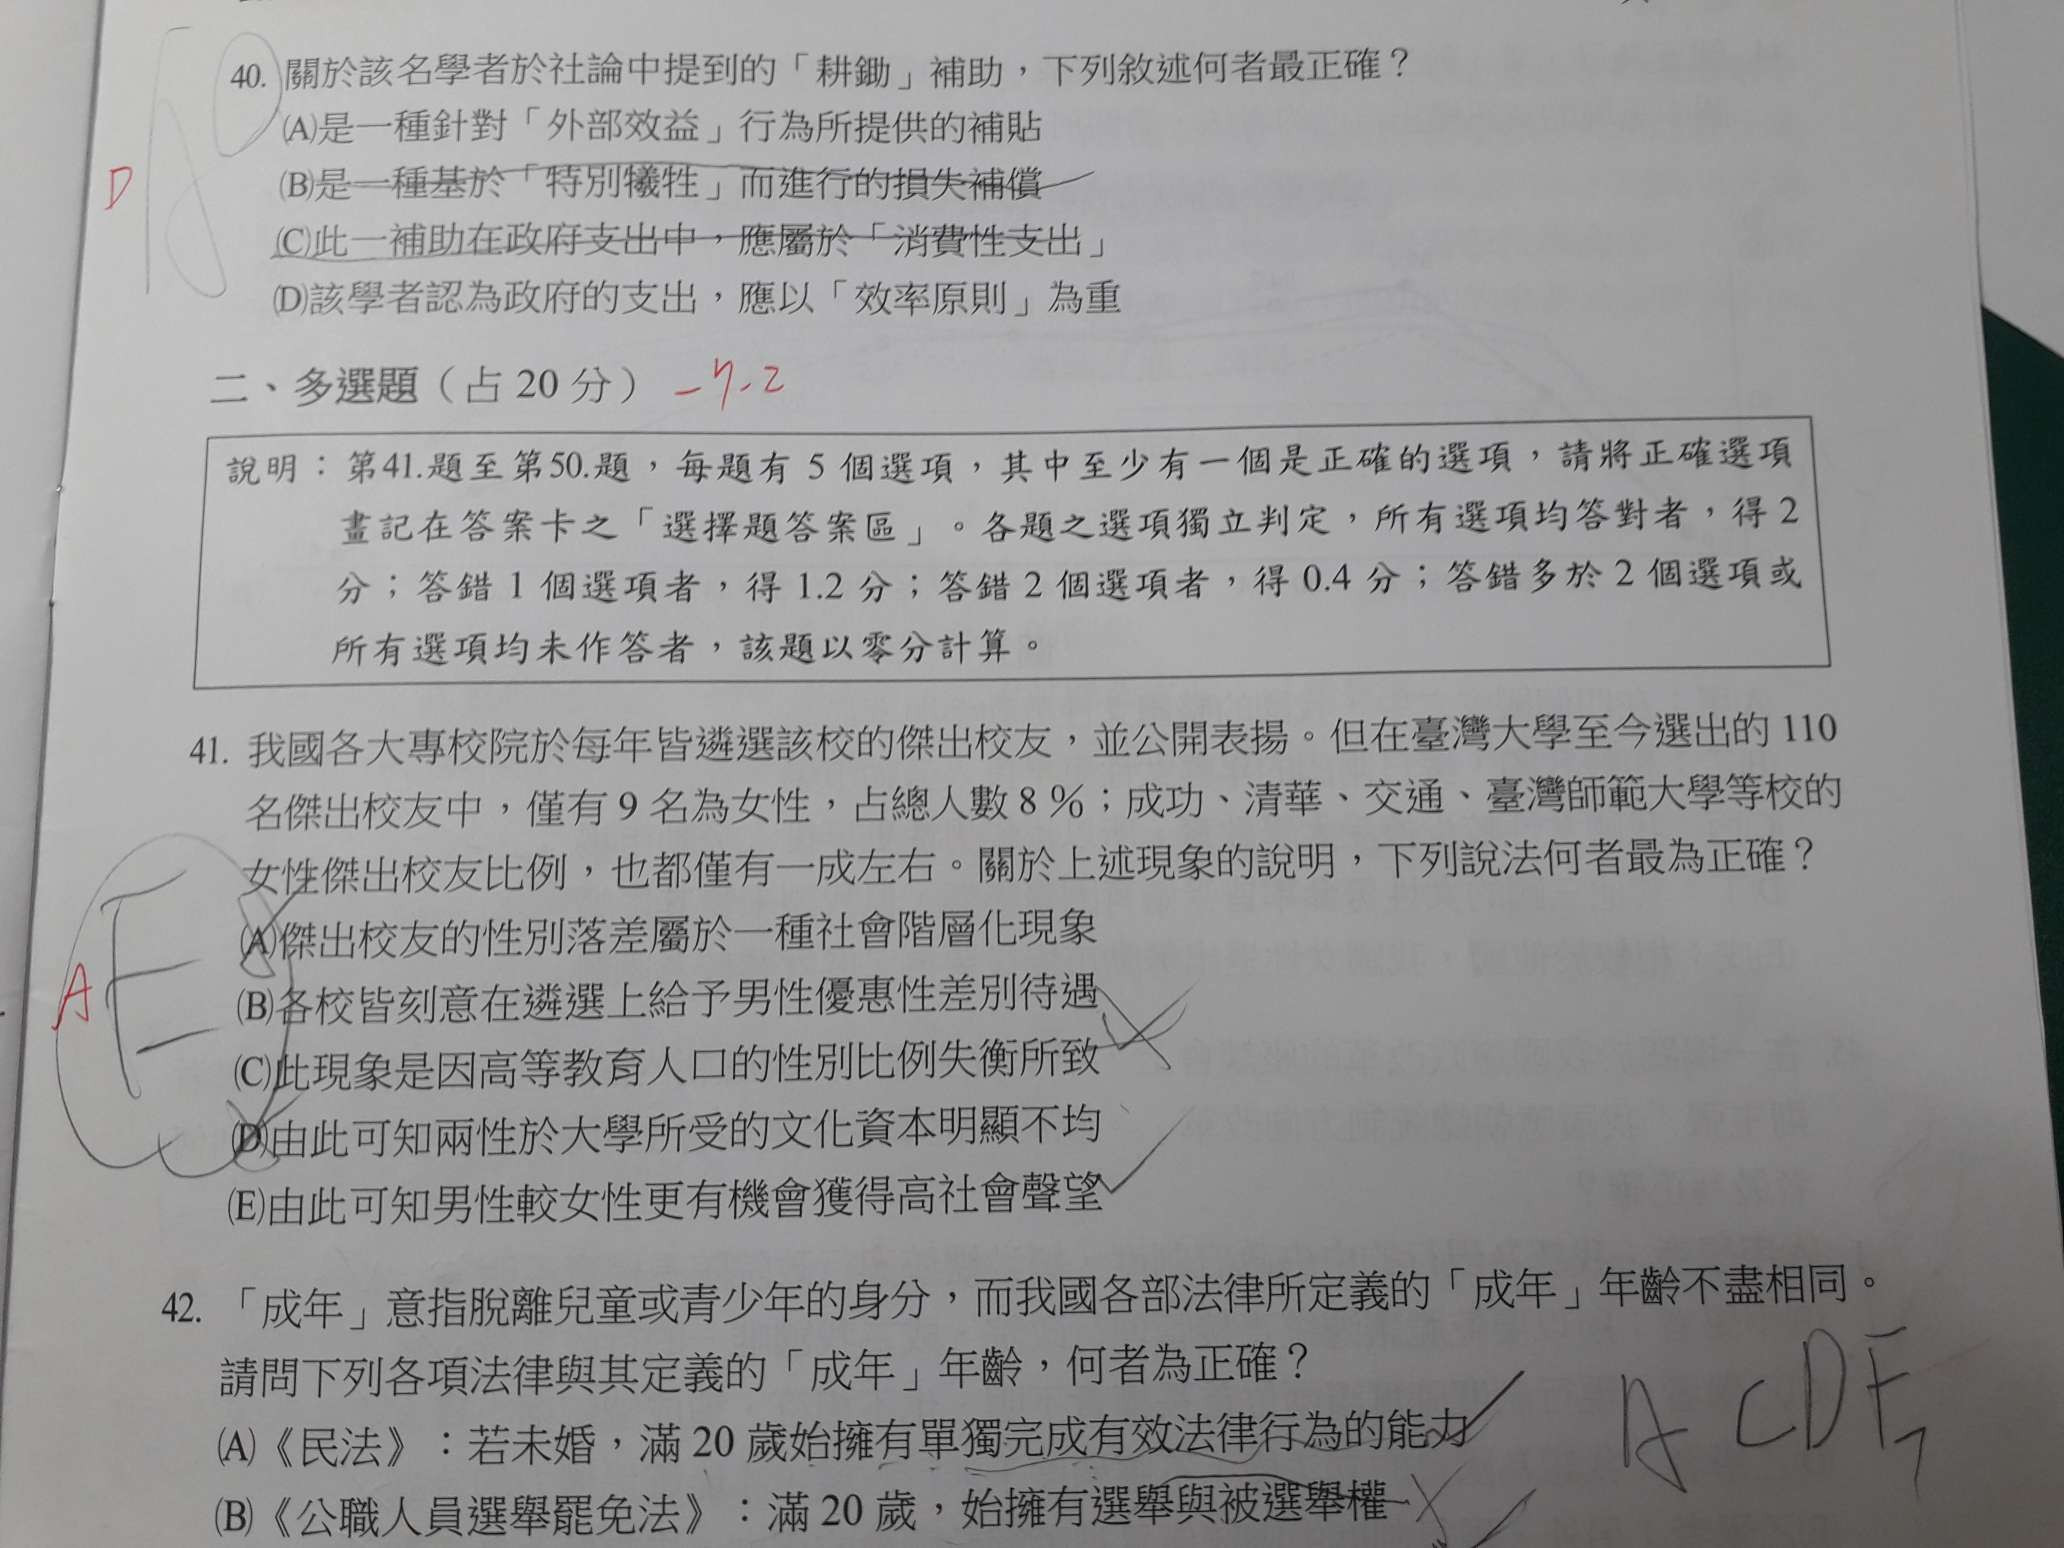 40. 關於該名學者於社論中提到的「耕鋤」補助，下列敘述何者最正確？
(A)是一種針對「外部效益」行為所提供的補貼
(B)是一種基於「特別犧牲」而進行的損失補償
D
(C)此一補助在政府支出中，應屬於「消費性支出」
(D)該學者認為政府的支出，應以「效率原則」為重
二、多選題（占 20 分） -7.2
說明：第41.題至第50.題，每題有 5 個選項，其中至少有一個是正確的選項，請將正確選項
畫記在答案卡之「選擇題答案區」。各題之選項獨立判定，所有選項均答對者，得 2
分；答錯 1 個選項者，得 1.2 分；答錯 2 個選項者，得 0.4 分；答錯多於 2 個選項或
所有選項均未作答者，該題以零分計算。
41. 我國各大專校院於每年皆遴選該校的傑出校友，並公開表揚。但在臺灣大學至今選出的 110
名傑出校友中，僅有 9 名為女性，占總人數 8％；成功、清華、交通、臺灣師範大學等校的
女性傑出校友比例，也都僅有一成左右。關於上述現象的說明，下列說法何者最為正確？
(A)傑出校友的性別落差屬於一種社會階層化現象
A E
(B)各校皆刻意在遴選上給予男性優惠性差別待遇
(C)此現象是因高等教育人口的性別比例失衡所致
(D)由此可知兩性於大學所受的文化資本明顯不均
(E)由此可知男性較女性更有機會獲得高社會聲望
42. 「成年」意指脫離兒童或青少年的身分，而我國各部法律所定義的「成年」年齡不盡相同。
請問下列各項法律與其定義的「成年」年齡，何者為正確？
(A)《民法》：若未婚，滿 20 歲始擁有單獨完成有效法律行為的能力
ACDE
(B)《公職人員選舉罷免法》：滿 20 歲，始擁有選舉與被選舉權